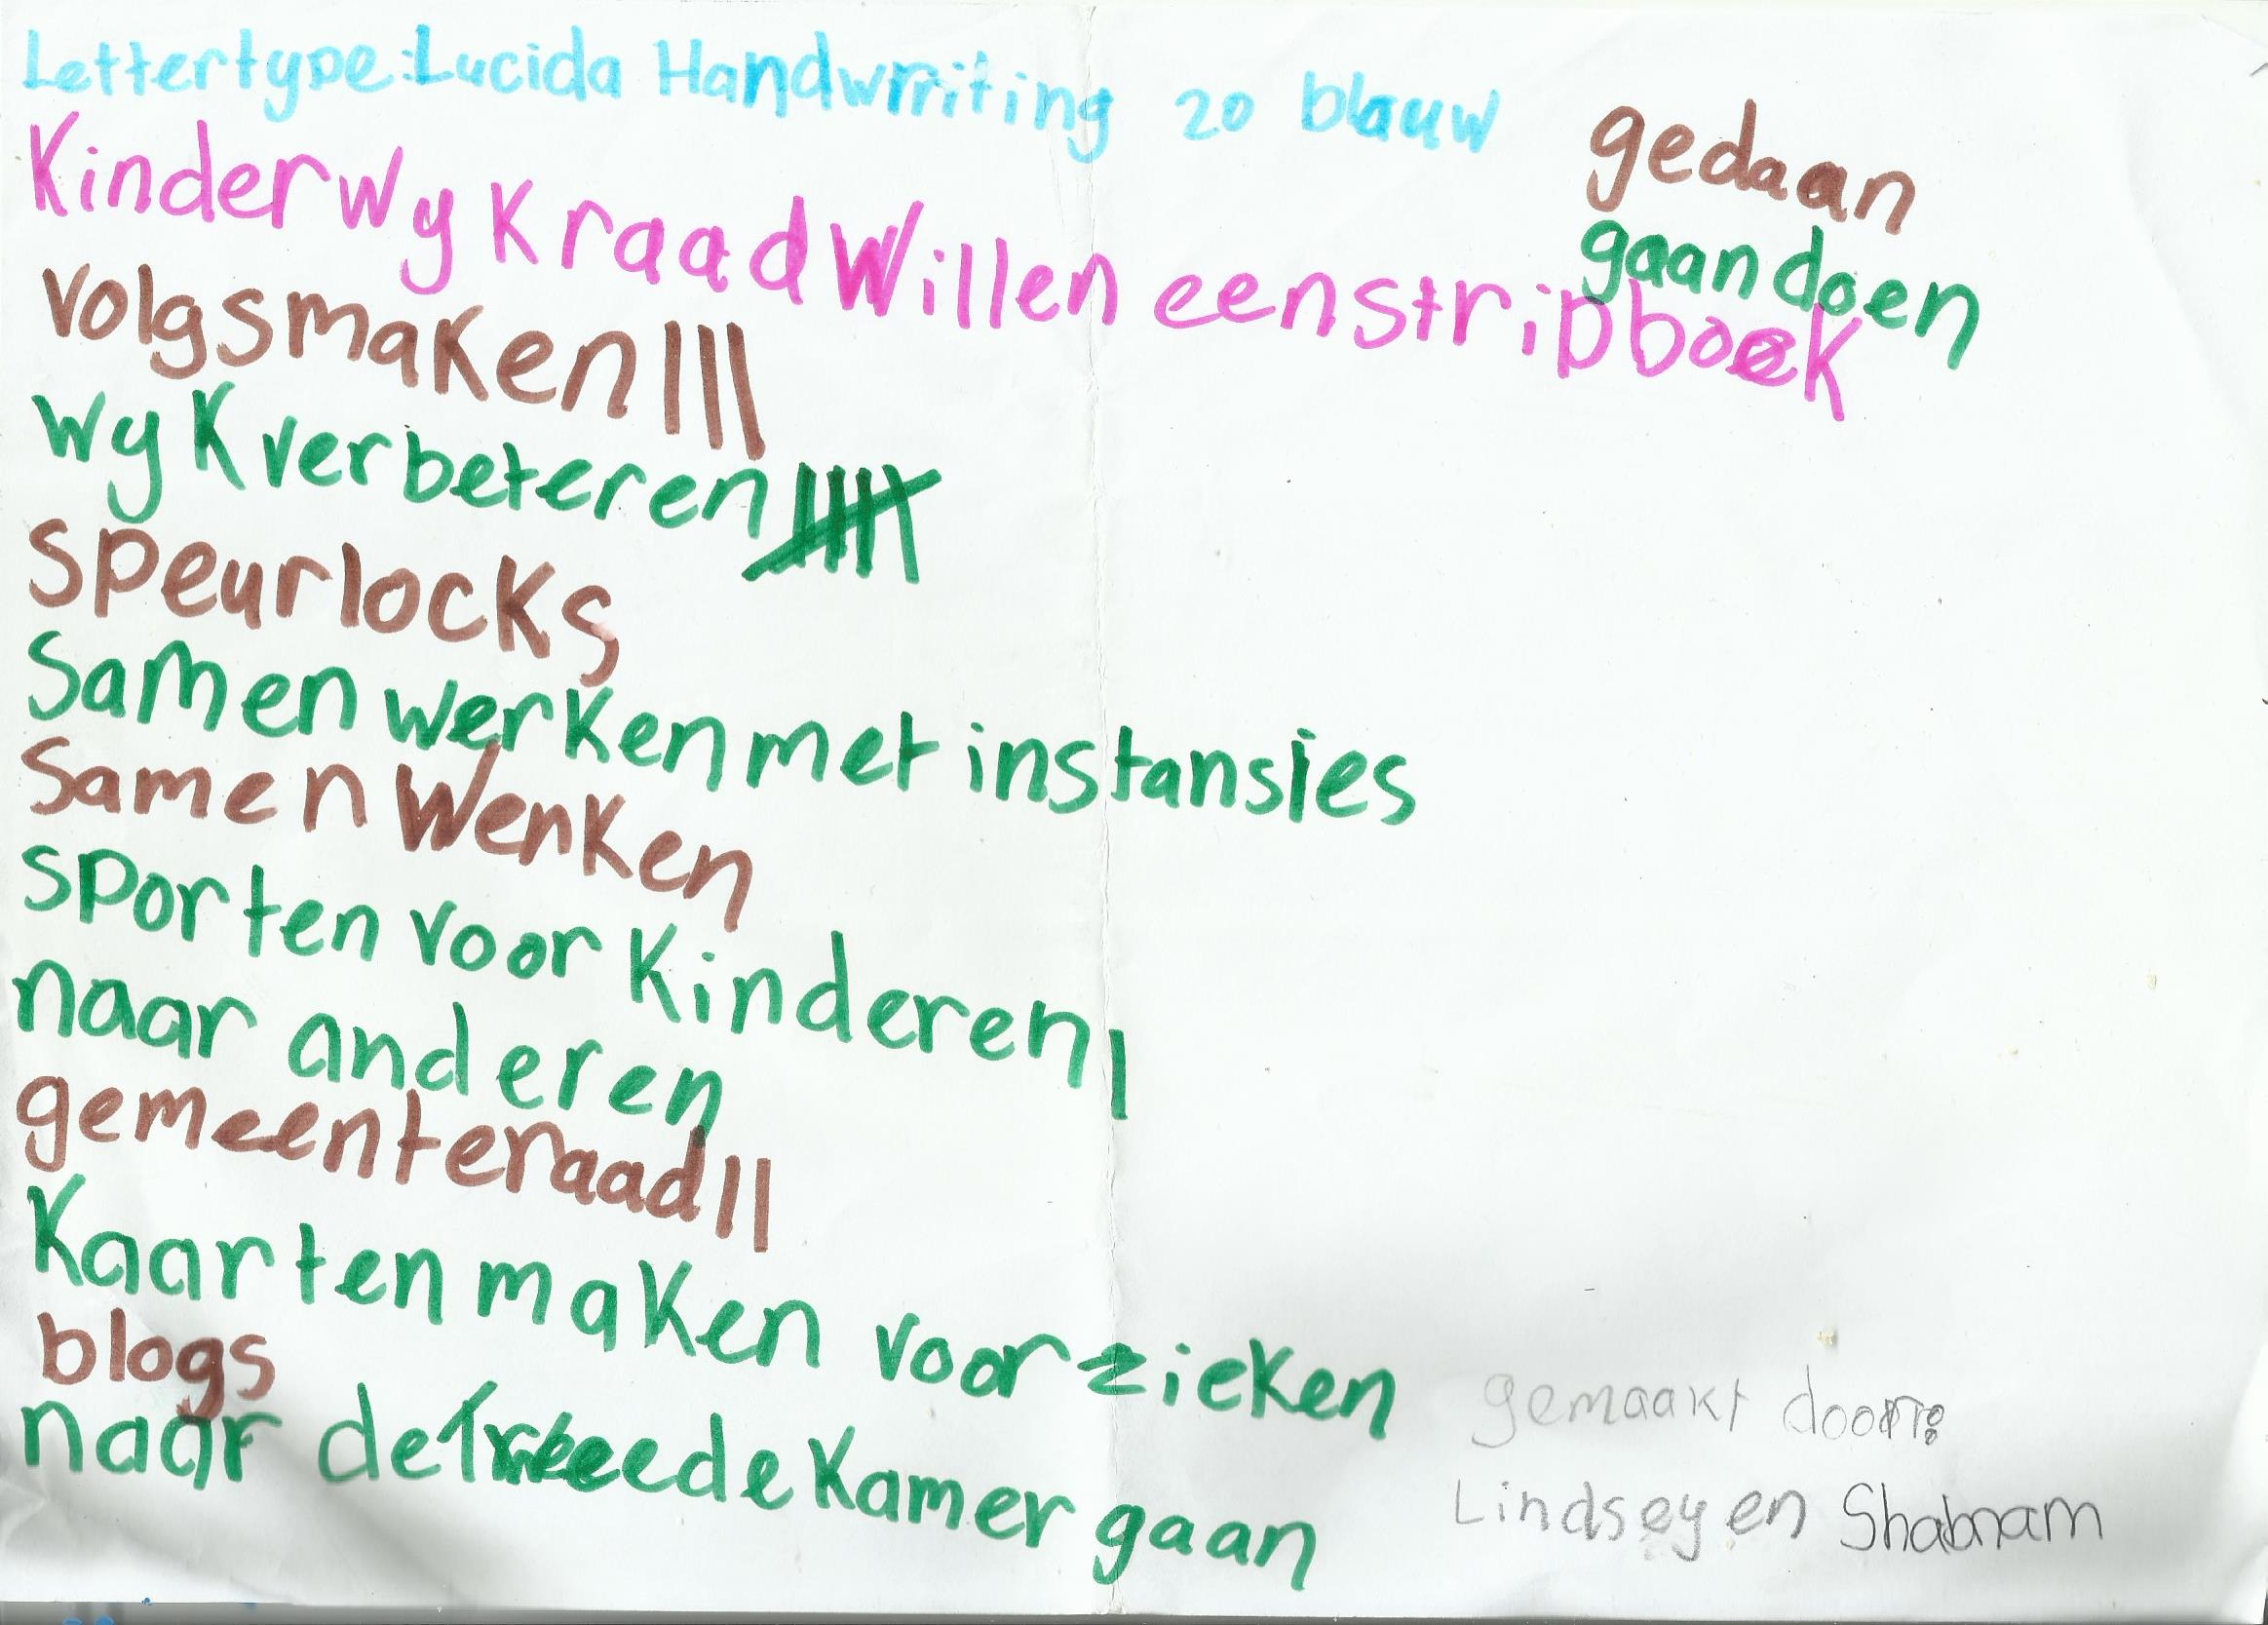 Lettertype: Lucida Handwriting 20 blauw
gedaan
gaan doen
Kinderwykraad Willen een stripboek
Volgsmaken |||
wyk verbeteren
speurlocks
Samen werken met instansies
Samen Werken
sporten voor kinderen |
naar anderen
gemeenteraad ||
Kaarten maken voor zieken
blogs
naar de Tweede Kamer gaan
gemaakt door:
Lindsey en Shabnam